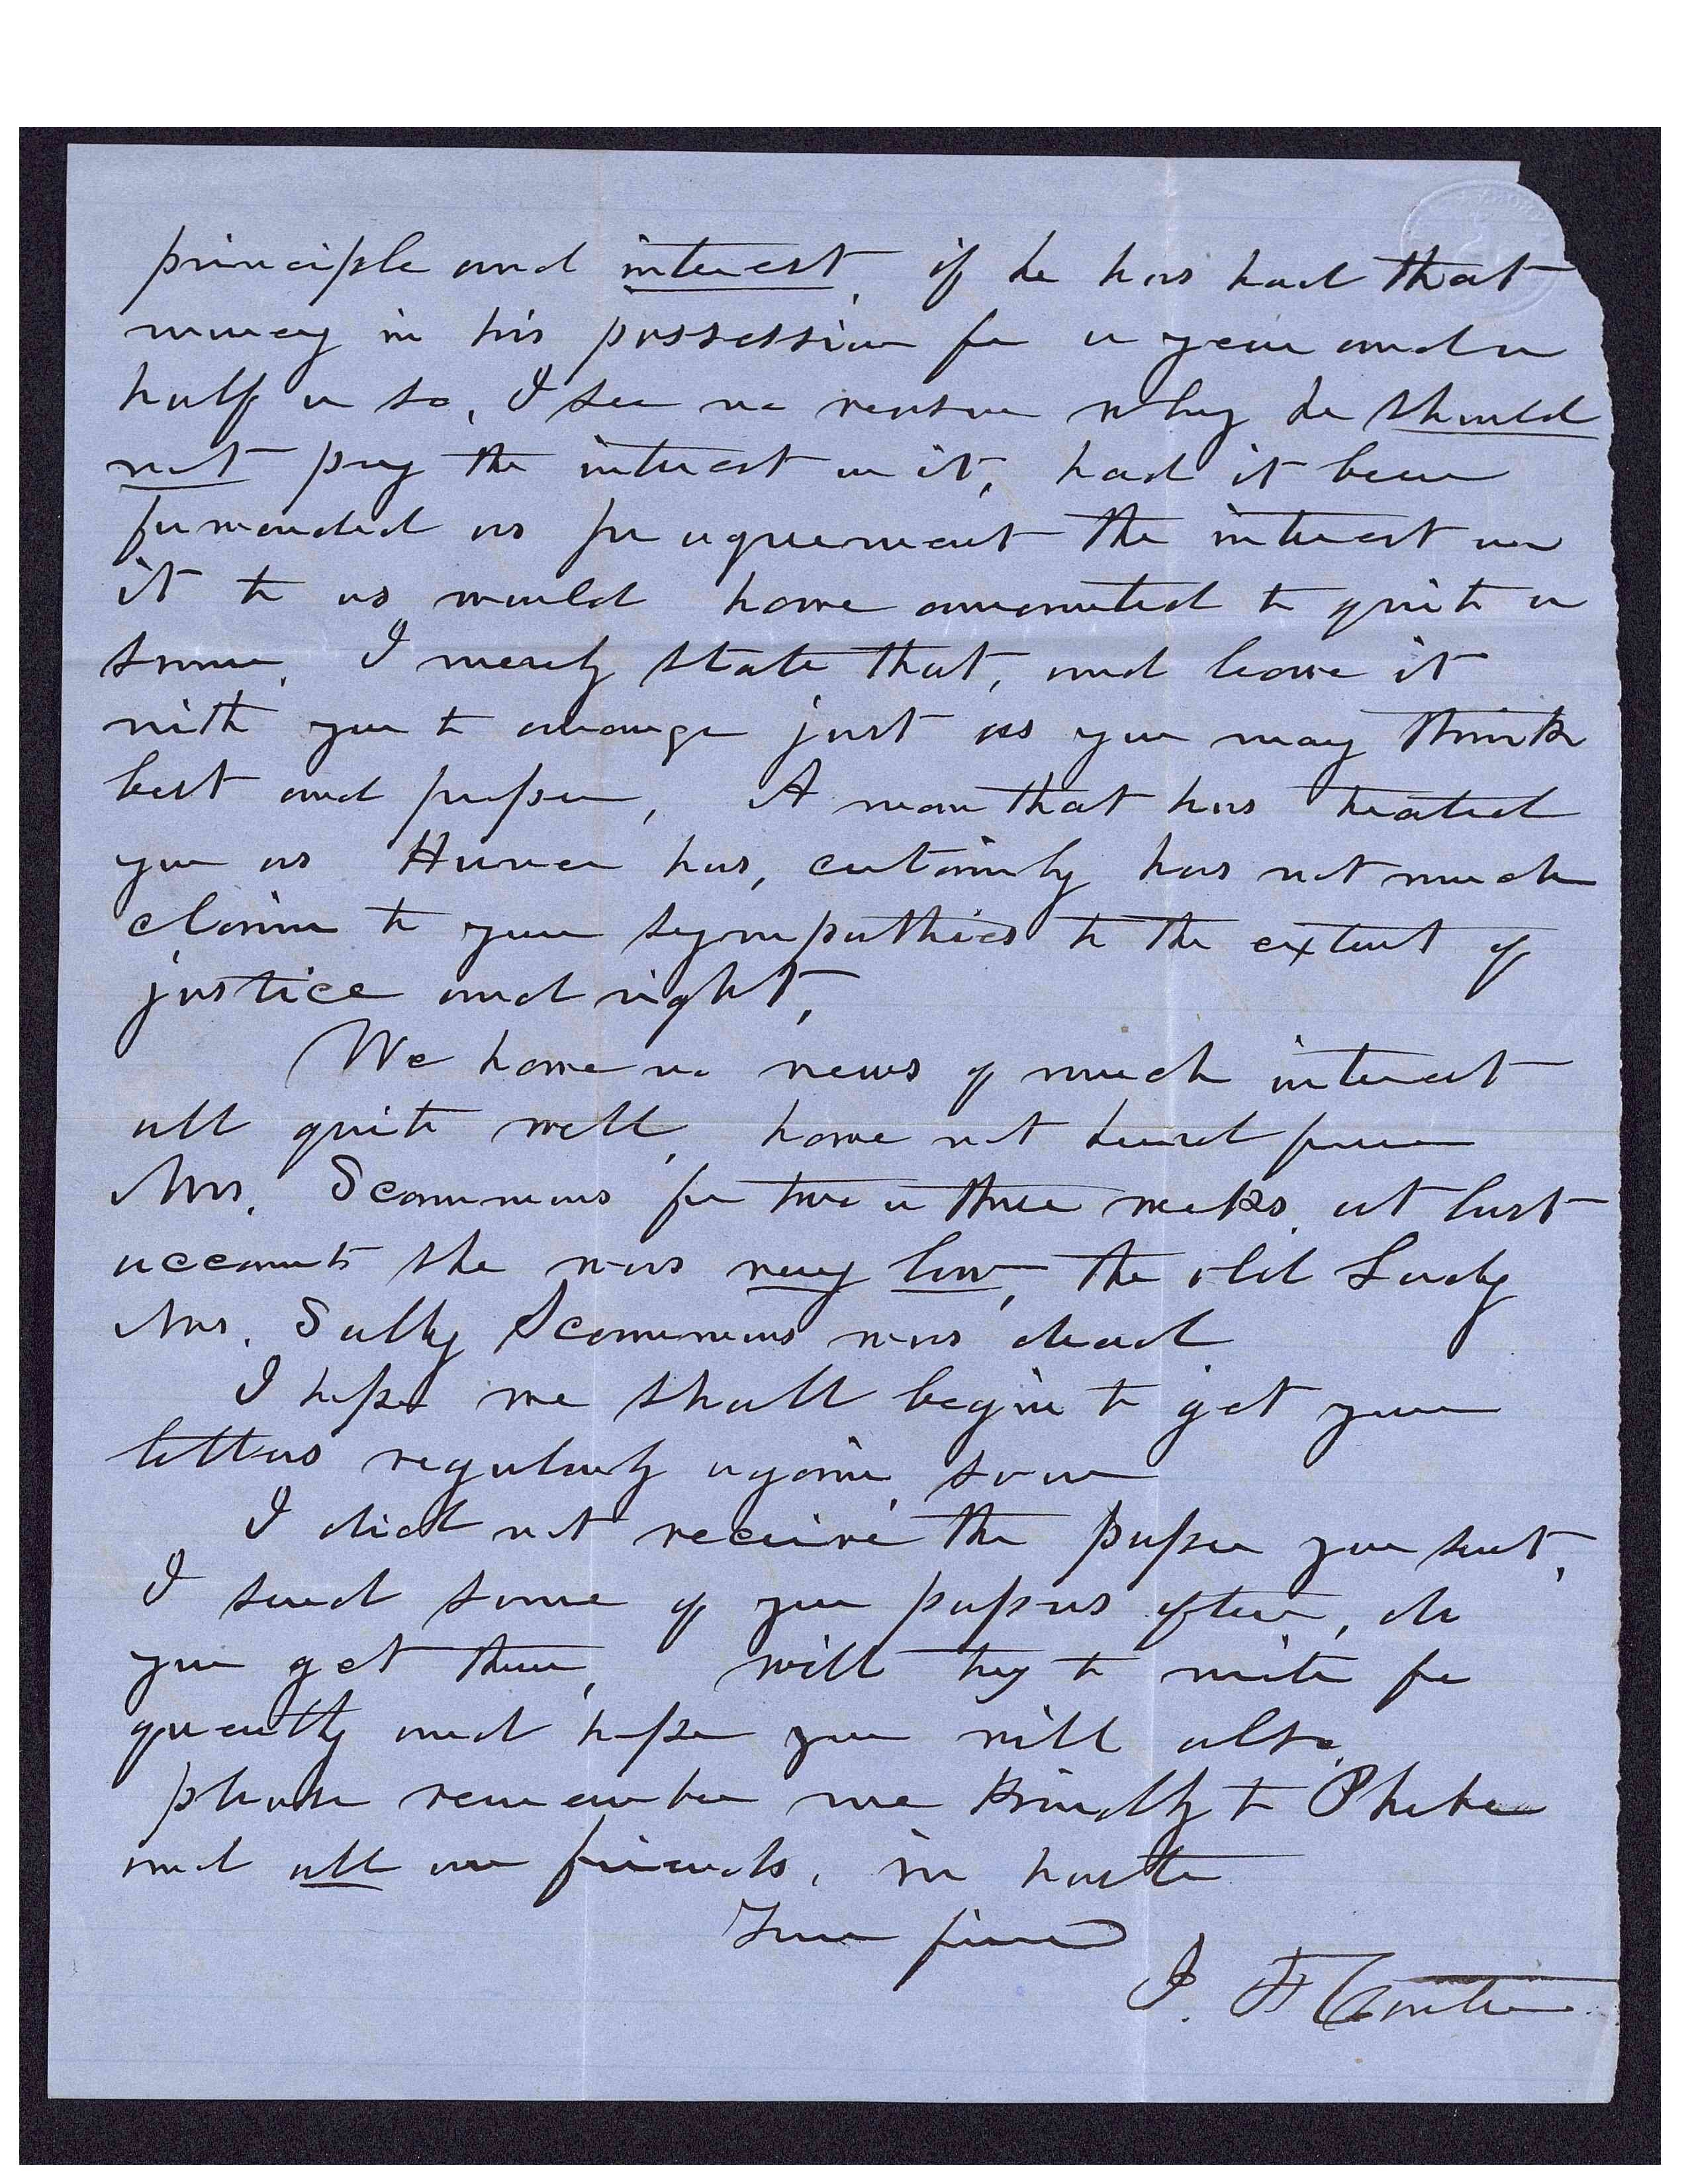 principle and interest, if he has had that
money in his possession for a year and a
half or so, I see no reason why he should
not pay the interest on it, had it been
forwarded as per agreement the interest on
it to us would have amounted to quite a
some, I merely state that, and leave it
with you to arrange just as you may think
best and proper, A man that has treated
you as has, certainly has not much
claim to your sympathies to the extent of
justice and right,
We have no news of much interest
all quite well, have not heard from
Mrs. Scammons for two or three weeks, at last
accounts she was very low, the old Lady
Mrs. Sally Scammons was dead
I hope we shall begin to get your
letters regularly again, soon
I did not receive the paper you sent,
I send some of our papers often, do
you get them, will try to write fre
quently and hope you will also,
please remember me kindly to Phebe
and all our friends, in haste
Your friend
J. F.